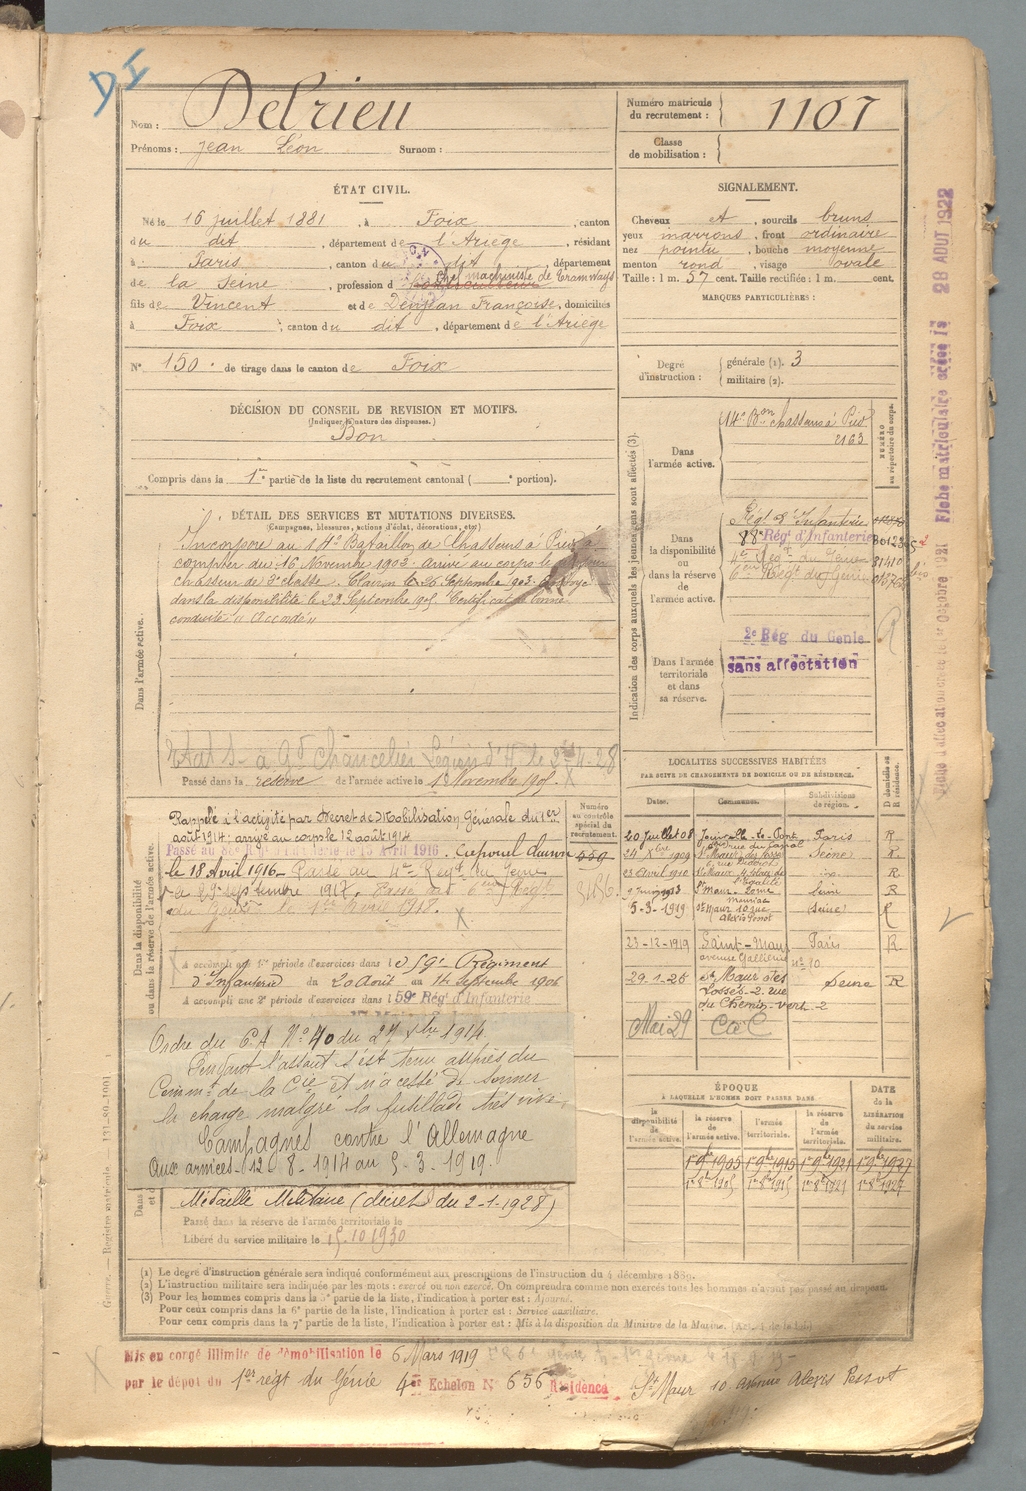 DI
Nom : Delrieu
Prénoms : Jean Léon Surnom :
Numéro matricule du recrutement : 1107
Classe de mobilisation :
ÉTAT CIVIL.
Né le 16 juillet 1881, à Foix, canton
du dit, département de l'Ariège, résidant
à Paris, canton du dit, département
de la Seine, profession d Chef machiniste de Tramways
fils de Vincent et de Françoise, domiciliés
à Foix, canton du dit, département de l'Ariège
N° 150 de tirage dans le canton de Foix
DÉCISION DU CONSEIL DE REVISION ET MOTIFS.
(Indiquer la nature des dispenses.)
Bon
Compris dans la 1re partie de la liste du recrutement cantonal ( e portion).
SIGNALEMENT.
Cheveux et, sourcils bruns
yeux marrons, front ordinaire
nez pointu, bouche moyenne
menton rond, visage ovale
Taille : 1 m. 57 cent. Taille rectifiée : 1 m. cent.
MARQUES PARTICULIÈRES :
Degré d'instruction : générale (1). 3
militaire (2).
DÉTAIL DES SERVICES ET MUTATIONS DIVERSES.
(Campagnes, blessures, actions d'éclat, décorations, etc.)
Dans l'armée active.
Incorporé au 14e Bataillon de Chasseurs à Pied à
compter du 16 Novembre 1903. arrivé au corps le
chasseur de 2e classe. Clairon le 26 Septembre 1903.
dans la disponibilité le 23 Septembre 1905. Certificat de bonne
conduite "Accordé"
Etat S. à Gd Chancelier Légion d'H. le 2-4-28
Passé dans la réserve de l'armée active le 1 Novembre 1905.
Indication des corps auxquels les jeunes gens sont affectés (3).
NUMÉRO au répertoire du corps.
Dans l'armée active.
14e Bon Chasseurs à Pied
2163
Dans la disponibilité ou dans la réserve de l'armée active.
Régt d'Infanterie
88e Rég d'Infanterie
4e Régt du Génie
6e Régt du Génie
Dans l'armée territoriale et dans sa réserve.
2e Rég du Génie
sans affectation
Fiche matriculaire créée le 28 AOUT 1922
Dans la disponibilité ou dans la réserve de l'armée active.
Numéro au contrôle spécial du recrutement.
559
Rappelé à l'activité par Décret de Mobilisation Générale du 1er
août 1914; arrivé au corps le 12 août 1914
Passé au 88e Rég d'Infanterie le 13 Avril 1916.
le 18 Avril 1916. Passé au 4e Régt du Génie
le 29 septembre 1917. Passé au 6eme Régt
du Génie le 1er Avril 1918.
A accompli une 1re période d'exercices dans l e 59e Régiment
d'Infanterie du 20 Août au 14 Septembre 1906
A accompli une 2e période d'exercices dans l 59e Rég d'Infanterie
Ordre du C.A. N° 40 du 27 xbre 1914
Pendant l'assaut s'est tenu auprès du
Commt de la Cie et n'a cessé de sonner
la charge malgré la fusillade très vive;
Campagnes contre l'Allemagne
Aux armées 12-8-1914 au 5-3-1919.
Médaille Militaire (décret du 2-1-1928)
Passé dans la réserve de l'armée territoriale le
Libéré du service militaire le 15.10.1930
LOCALITÉS SUCCESSIVES HABITÉES
PAR SUITE DE CHANGEMENTS DE DOMICILE OU DE RÉSIDENCE.
Dates. Communes. Subdivisions de région. D domicile ou R résidence.
20 Juillet 08 Joinville-le-Pont Paris R
24 Xbre 1909 St Maur des Fossés Seine R
25 Avril 1910 St Maur Place de l'Égalité R
9 Juin 1913 St Maur Seine R
5-3-1919 St Maur 10 rue Alexis Pessot (Seine) R
23-12-1919 Saint-Maur avenue Gallieni Paris R
29-1-26 St Maur des Fossés-2-rue du Chemin-vert-2 Seine R
Mai 29 C a C
ÉPOQUE
À LAQUELLE L'HOMME DOIT PASSER DANS
DATE de la LIBÉRATION du service militaire.
la disponibilité de l'armée active. la réserve de l'armée active. l'armée territoriale. la réserve de l'armée territoriale.
1er 9bre 1905 1er 9bre 1915 1er 9bre 1921 1er 9bre 1927
1er 8bre 1905 1er 8bre 1915 1er 8bre 1921 1er 8bre 1927
(1) Le degré d'instruction générale sera indiqué conformément aux prescriptions de l'instruction du 4 décembre 1889.
(2) L'instruction militaire sera indiquée par les mots : exercé ou non exercé. On comprendra comme non exercés tous les hommes n'ayant pas passé au drapeau.
(3) Pour les hommes compris dans la 5e partie de la liste, l'indication à porter est : Ajourné.
Pour ceux compris dans la 6e partie de la liste, l'indication à porter est : Service auxiliaire.
Pour ceux compris dans la 7e partie de la liste, l'indication à porter est : Mis à la disposition du Ministre de la Marine.
Mis en congé illimité de démobilisation le 6 Mars 1919
par le dépôt du 1er régt du Génie 4e Echelon N° 656 Résidence St Maur 10 avenue Alexis Pessot